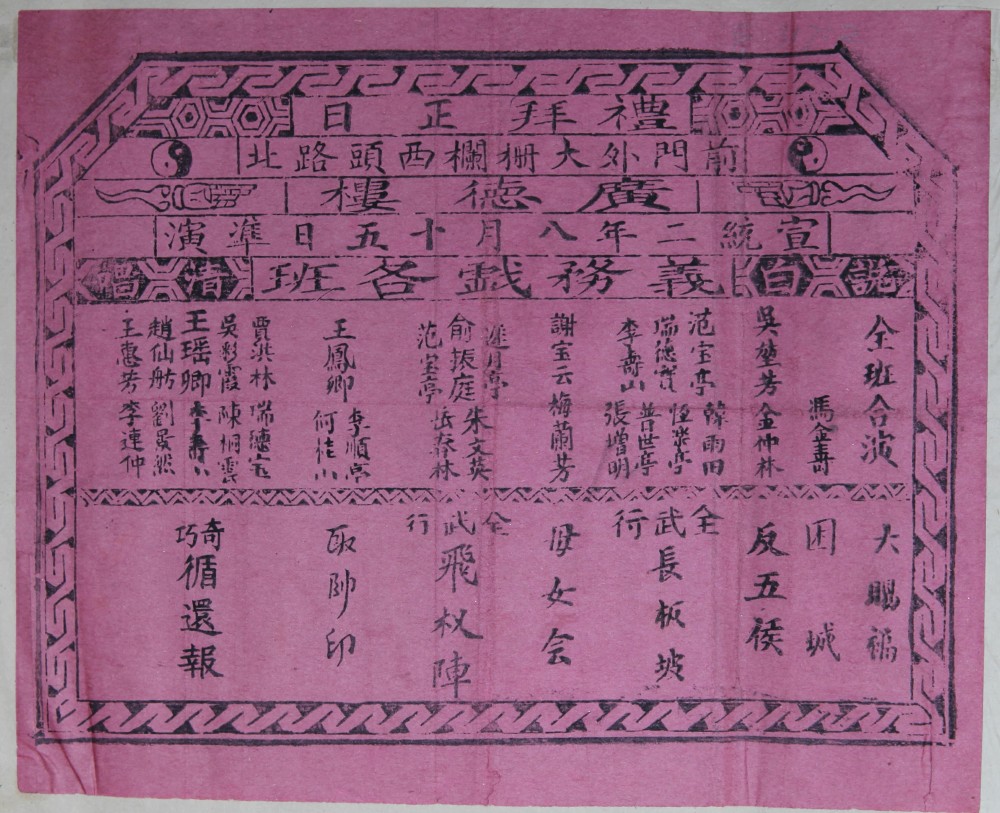 禮拜正日
前門外大柵欄西頭路北
廣德樓
宣統二年八月十五日準演
說白 義務戲各班 清
全班合演
大賜福
馮金壽
困城
吳堃芳 金仲林
反五侯
范宝亭 韓雨田
瑞德寶 恒樂亭
李壽山 普世亭
張增明
全武行
長板坡
謝宝云 梅蘭芳
母女会
遲月亭 朱文英
俞振庭 岳春林
范宝亭
全武行
飛杈陣
王鳳卿 李順亭
何桂山
取帥印
賈洪林 瑞德宝
吳彩霞 陳桐雲
王瑶卿 李壽山
趙仙舫 劉景然
王惠芳 李連仲
奇巧
循還報